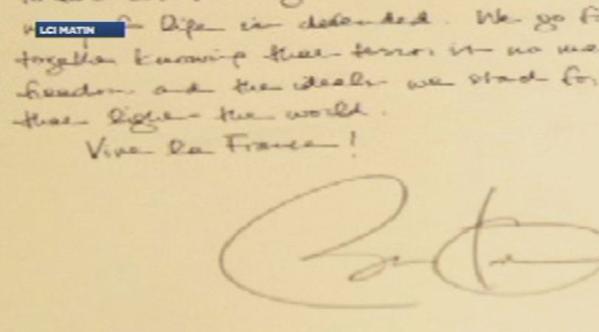 LCI MATIN
of life is defended. We go
together knowing that terror is no
freedom and the ideals we stand for,
that light the world.
Vive la France!